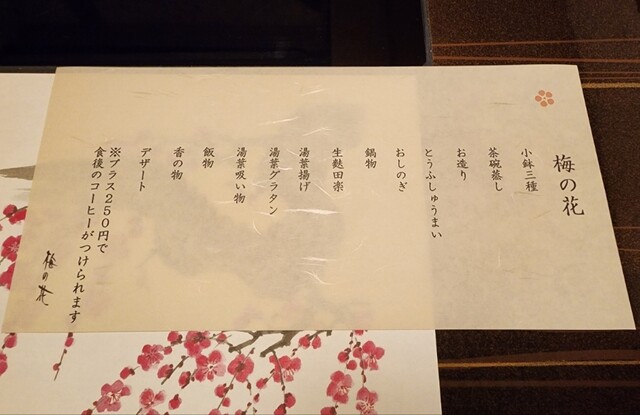 梅の花
小鉢三種
茶碗蒸し
お造り
とうふしゅうまい
おしのぎ
鍋物
生麩田楽
湯葉揚げ
湯葉グラタン
湯葉吸い物
飯物
香の物
デザート
※プラス250円で
食後のコーヒーがつけられます
梅の花